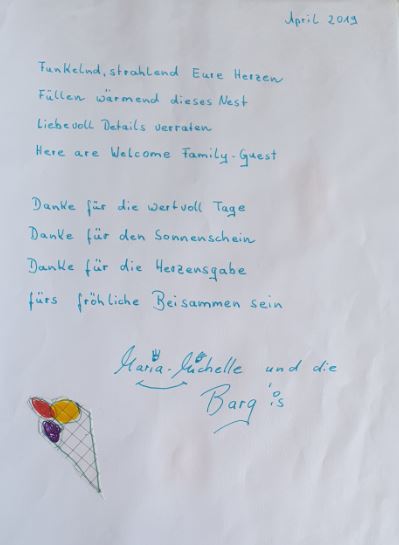 April 2019
Funkelnd, strahlend Eure Herzen
Füllen wärmend dieses Nest
Liebevoll Details verraten
Here are Welcome Family-Guest
Danke für die wertvoll Tage
Danke für den Sonnenschein
Danke für die Herzensgabe
fürs fröhliche Beisammen sein
Maria-Michelle und die
Barg's